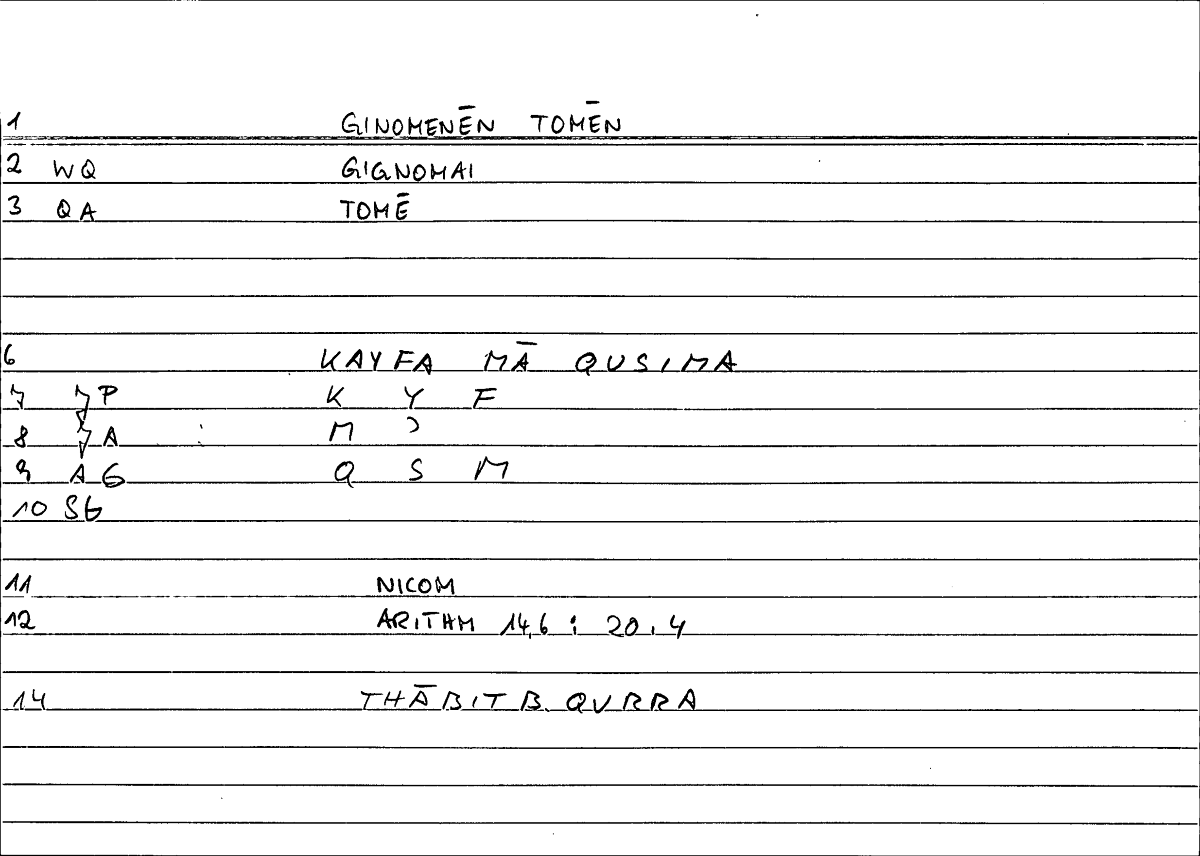 1 GINOMENĒN TOMĒN
2 WQ GIGNOMAI
3 QA TOMĒ
6 KAYFA MĀ QUSIMA
7 P K Y F
8 A : M ʾ
9 AG Q S M
10 SG
11 NICOM
12 ARITHM 14,6 : 20.4
14 THĀBIT B. QURRA